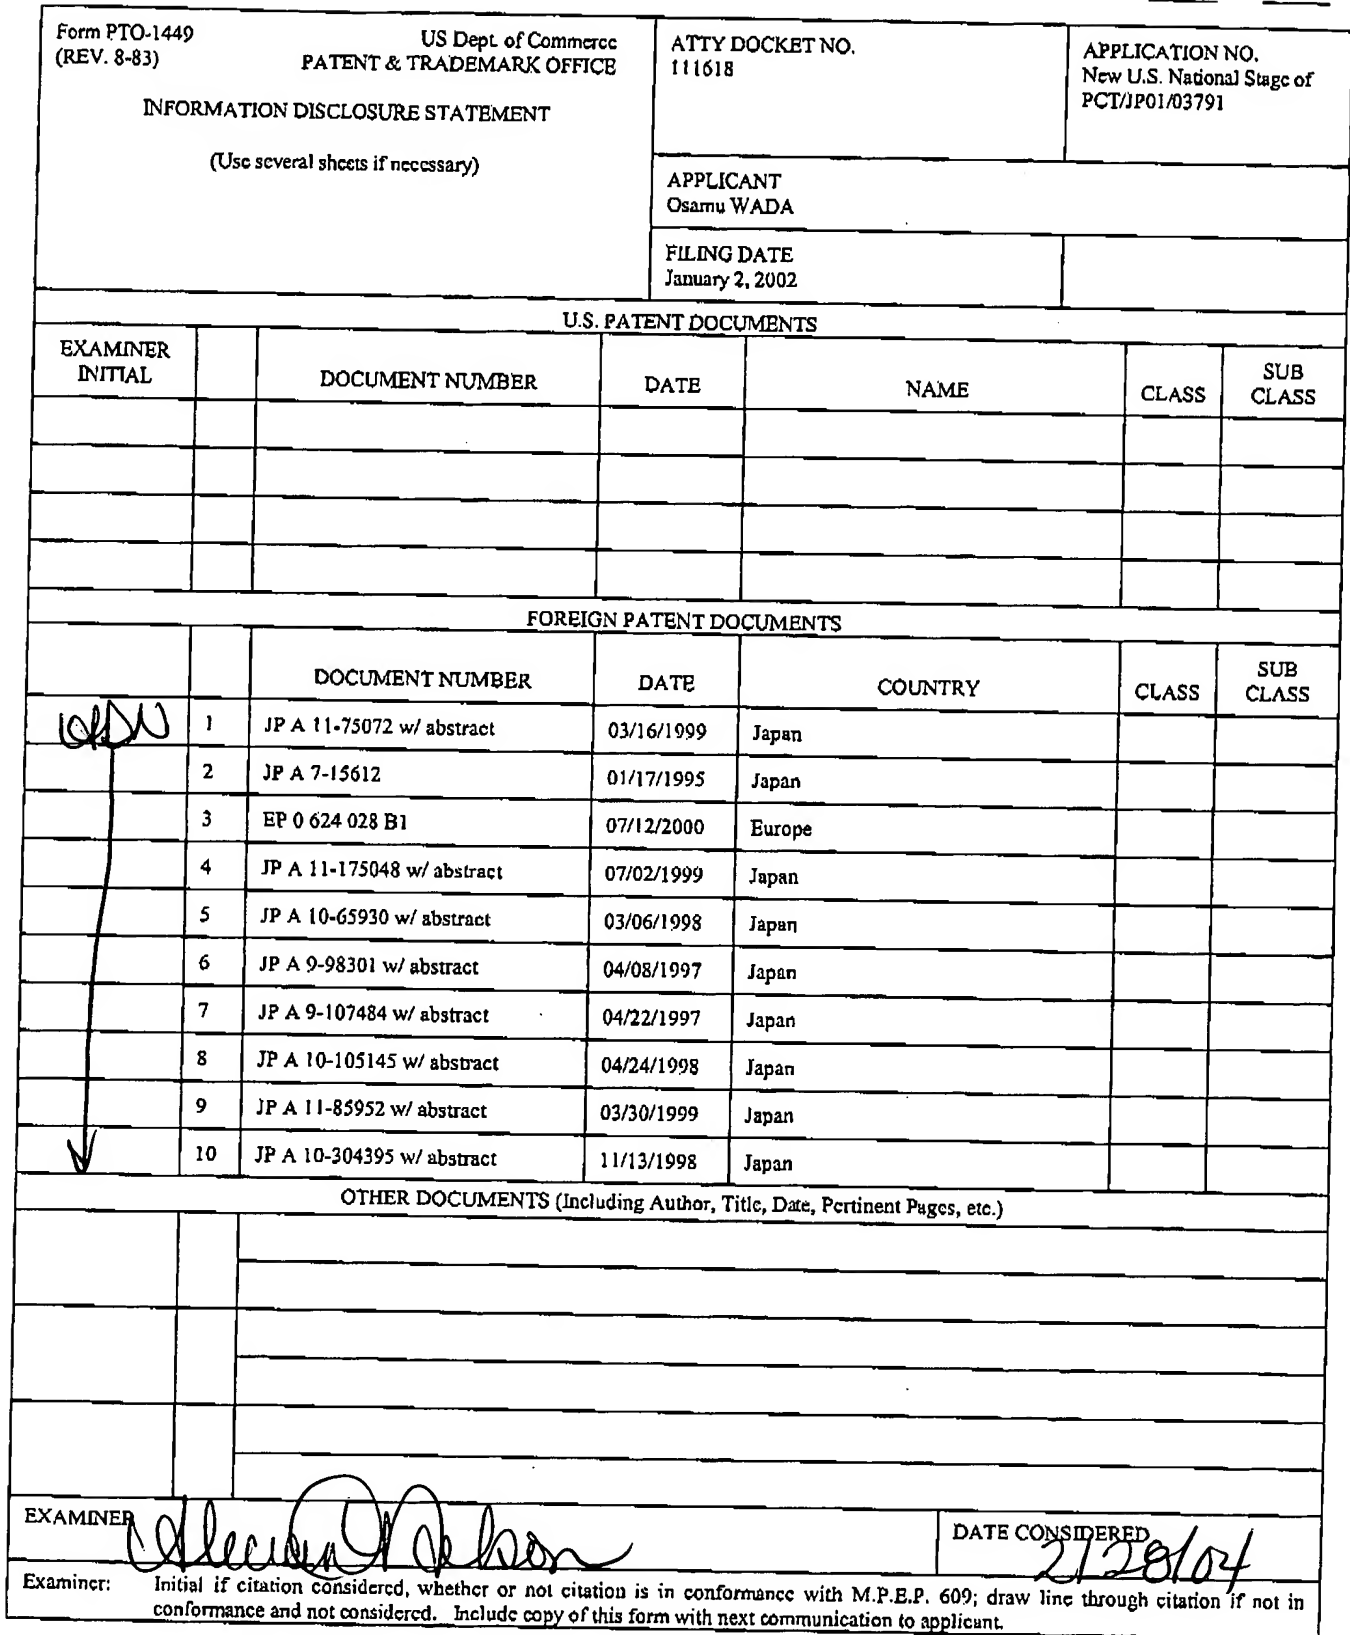 Form PTO-1449
(REV. 8-83)
US Dept. of Commerce
PATENT & TRADEMARK OFFICE
INFORMATION DISCLOSURE STATEMENT
(Use several sheets if necessary)
ATTY DOCKET NO.
111618
APPLICATION NO.
New U.S. National Stage of
PCT/JP01/03791
APPLICANT
Osamu WADA
FILING DATE
January 2, 2002
U.S. PATENT DOCUMENTS
EXAMINER INITIAL DOCUMENT NUMBER DATE NAME CLASS SUB CLASS
FOREIGN PATENT DOCUMENTS
DOCUMENT NUMBER DATE COUNTRY CLASS SUB CLASS
1 JP A 11-75072 w/ abstract 03/16/1999 Japan
2 JP A 7-15612 01/17/1995 Japan
3 EP 0 624 028 B1 07/12/2000 Europe
4 JP A 11-175048 w/ abstract 07/02/1999 Japan
5 JP A 10-65930 w/ abstract 03/06/1998 Japan
6 JP A 9-98301 w/ abstract 04/08/1997 Japan
7 JP A 9-107484 w/ abstract 04/22/1997 Japan
8 JP A 10-105145 w/ abstract 04/24/1998 Japan
9 JP A 11-85952 w/ abstract 03/30/1999 Japan
10 JP A 10-304395 w/ abstract 11/13/1998 Japan
OTHER DOCUMENTS (Including Author, Title, Date, Pertinent Pages, etc.)
EXAMINER Nelson
DATE CONSIDERED 2/28/04
Examiner: Initial if citation considered, whether or not citation is in conformance with M.P.E.P. 609; draw line through citation if not in
conformance and not considered. Include copy of this form with next communication to applicant.